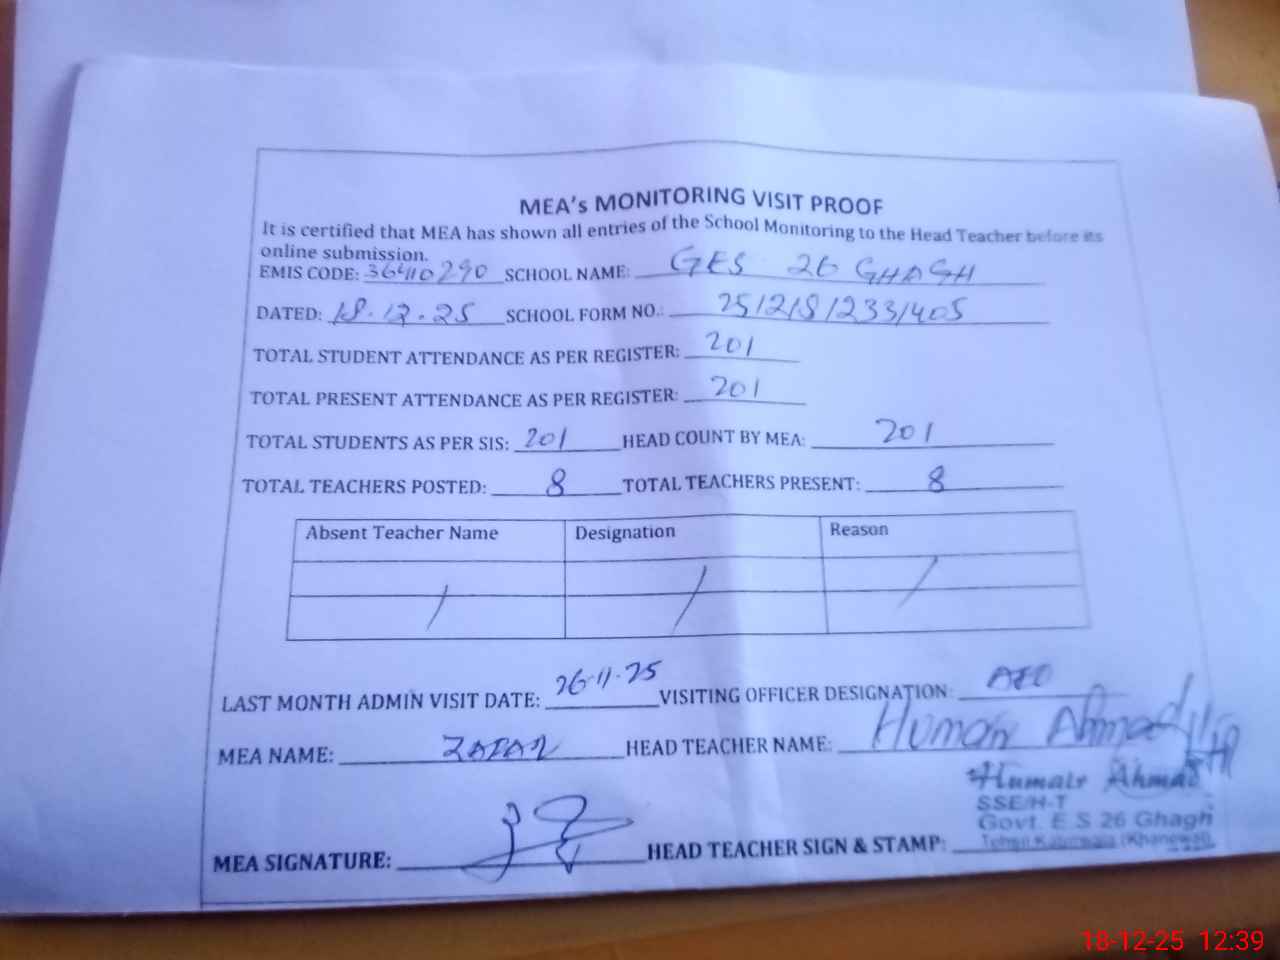 MEA's MONITORING VISIT PROOF
It is certified that MEA has shown all entries of the School Monitoring to the Head Teacher before its
online submission.
EMIS CODE: 36410290 SCHOOL NAME: GES 26 GHAGH
DATED: 18.12.25 SCHOOL FORM NO.: 251218/233/405
TOTAL STUDENT ATTENDANCE AS PER REGISTER: 201
TOTAL PRESENT ATTENDANCE AS PER REGISTER: 201
TOTAL STUDENTS AS PER SIS: 201 HEAD COUNT BY MEA: 201
TOTAL TEACHERS POSTED: 8 TOTAL TEACHERS PRESENT: 8
Absent Teacher Name Designation Reason
/ / /
LAST MONTH ADMIN VISIT DATE: 26-11-25 VISITING OFFICER DESIGNATION: AEO
MEA NAME: HEAD TEACHER NAME: Humair Ahmad
Humair Ahmad
SSE/H-T
Govt. E.S 26 Ghagh
Tehsil Kabirwala (Khanewal)
MEA SIGNATURE: HEAD TEACHER SIGN & STAMP:
18-12-25 12:39